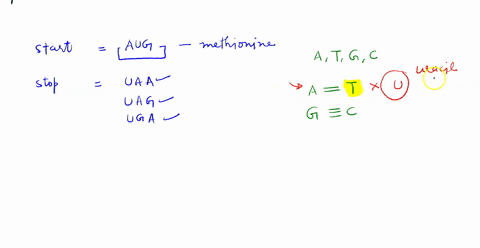 start = AUG — methionine
stop = UAA ✓
UAG ✓
UGA ✓
A, T, G, C
uracil
→ A = T × U
G ≡ C